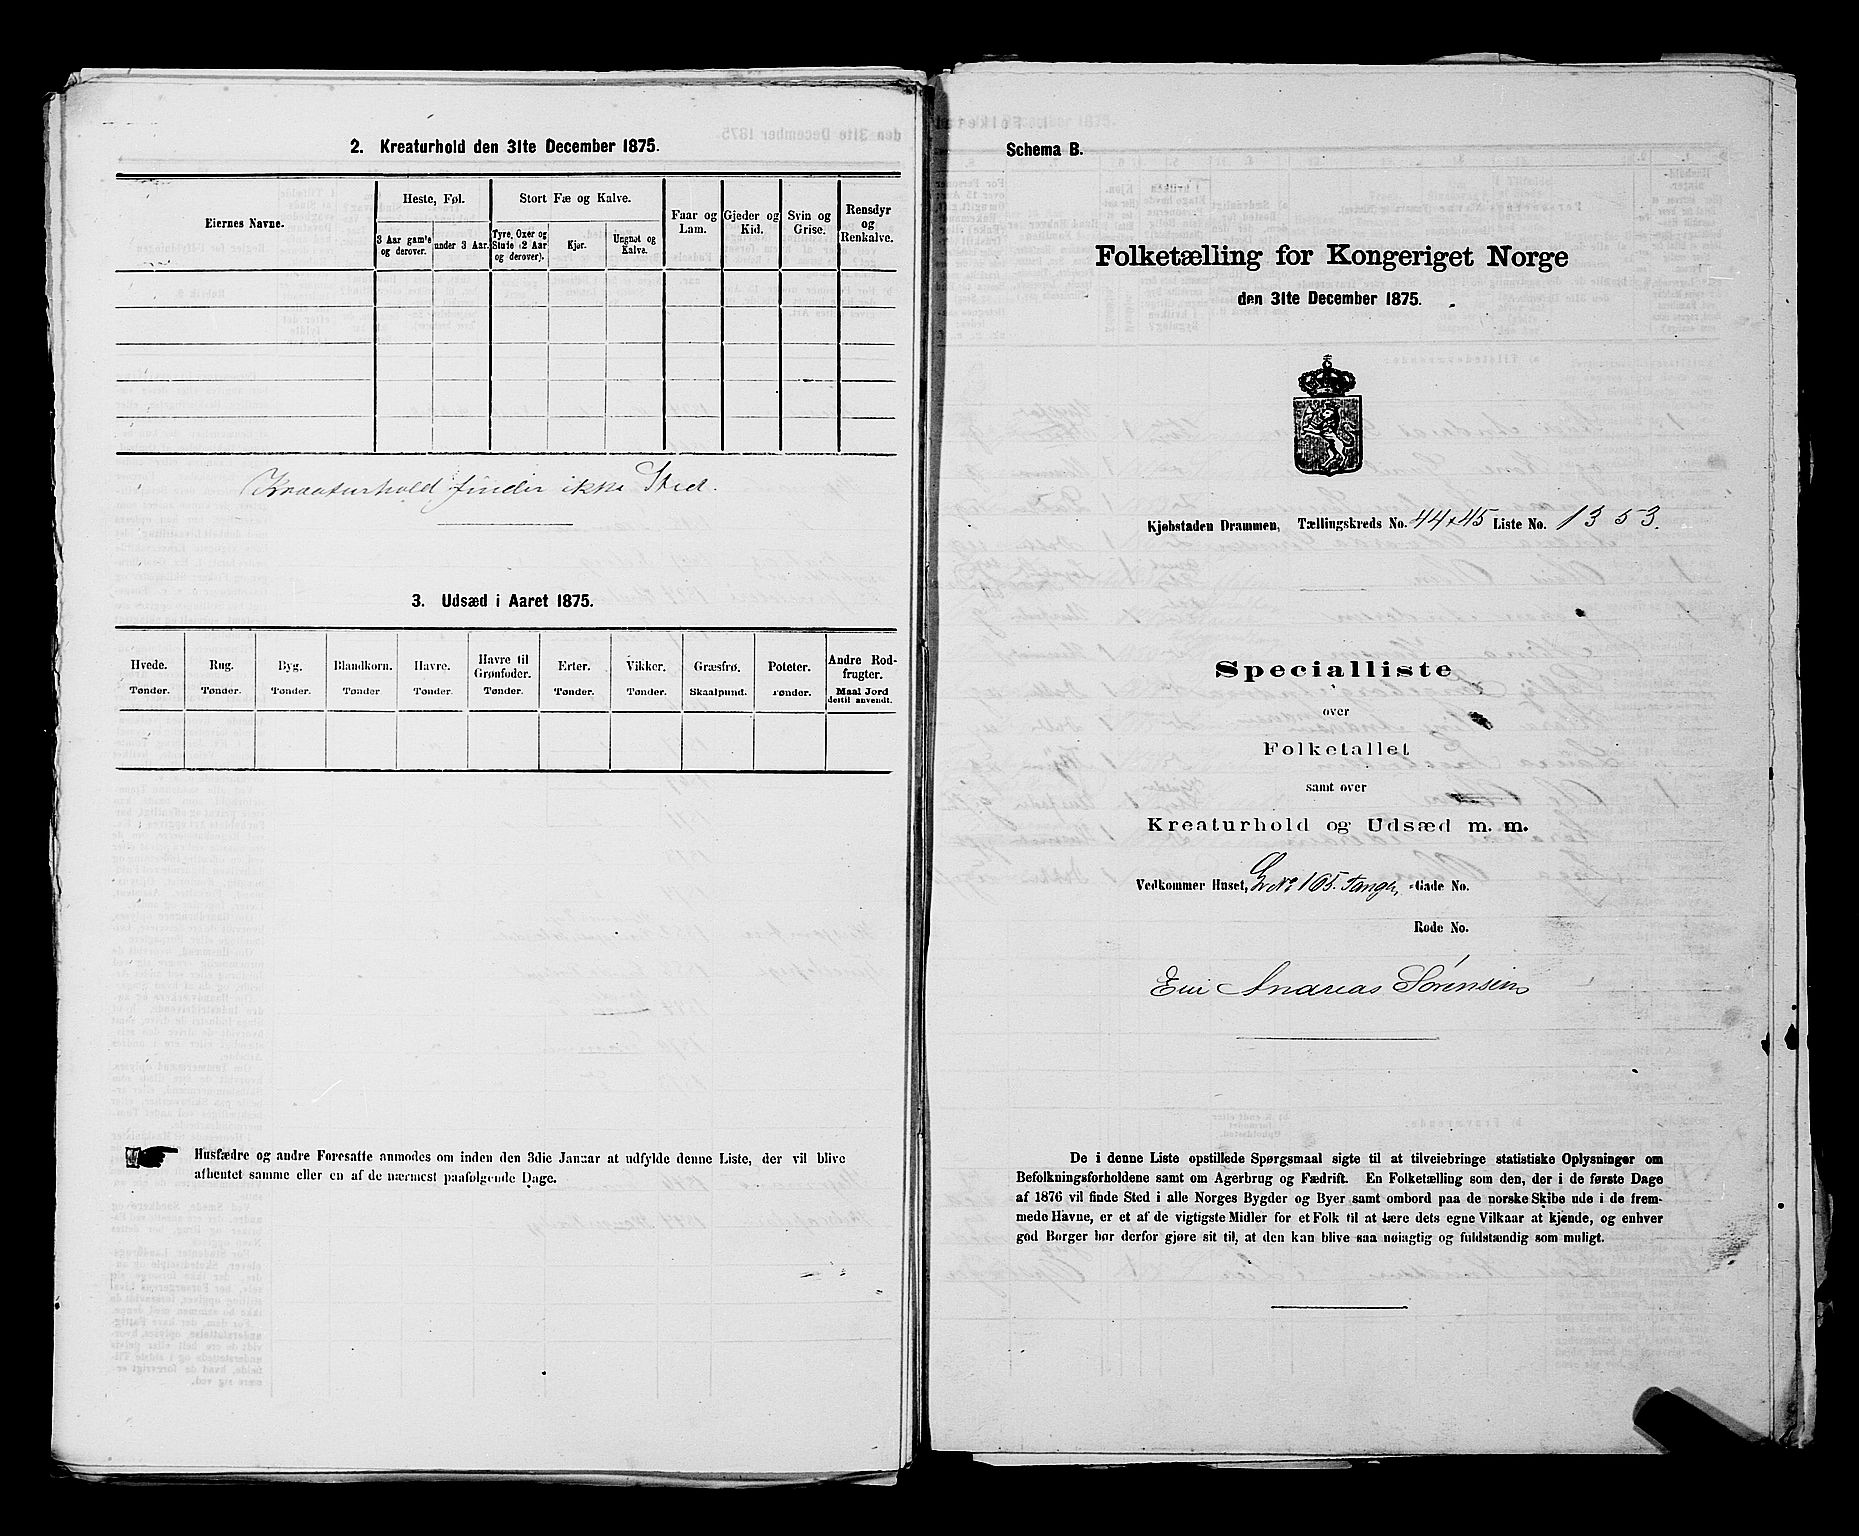 2. Kreaturhold den 31te December 1875.
Eiernes Navne.
Heste, Føl.
Stort Fæ og Kalve.
Faar og Lam.
Gjeder og Kid.
Svin og Grise.
Rensdyr og Renkalve.
3 Aar gam's og derover.
under 3 Aar.
Tyre, Oxer og Stude (2 Aar og derover).
Kjør.
Ungnøt og Kalve.
Kreaturhold finder ikke Sted.
3. Udsæd i Aaret 1875.
Hvede.
Rug.
Byg.
Blandkorn.
Havre.
Havre til Grønfoder.
Erter.
Vikker.
Græsfrø.
Poteter.
Andre Rodfrugter.
Tønder.
Tønder.
Tønder.
Tønder
Tønder.
Tønder.
Tønder.
Tønder.
Skaalpund.
Tønder.
Maal Jord dertil anvendt.
Husfædre og andre Foresatte anmodes om inden den 3die Januar at udfylde denne Liste, der vil blive
afhentet samme eller en af de nærmest paafølgende Dage.
Schema B.
Folketælling for Kongeriget Norge
den 31te December 1875.
Kjøbstaden Drammen, Tællingskreds No. 44 & 45 Liste No. 1353.
Specialliste
over
Folketallet
samt over
Kreaturhold og Udsæd m. m.
Vedkommer Huset, No 165 Tangen, -Gade No.
Rode No.
Eier Andreas Sørensen
De i denne Liste opstillede Spørgsmaal sigte til at tilveiebringe statistiske Oplysninger om
Befolkningsforholdene samt om Agerbrug og Fædrift. En Folketælling som den, der i de første Dage
af 1876 vil finde Sted i alle Norges Bygder og Byer samt ombord paa de norske Skibe ude i de frem-
mede Havne, er et af de vigtigste Midler for et Folk til at lære dets egne Vilkaar at kjende, og enhver
god Borger bør derfor gjøre sit til, at den kan blive saa nøiagtig og fuldstændig som muligt.